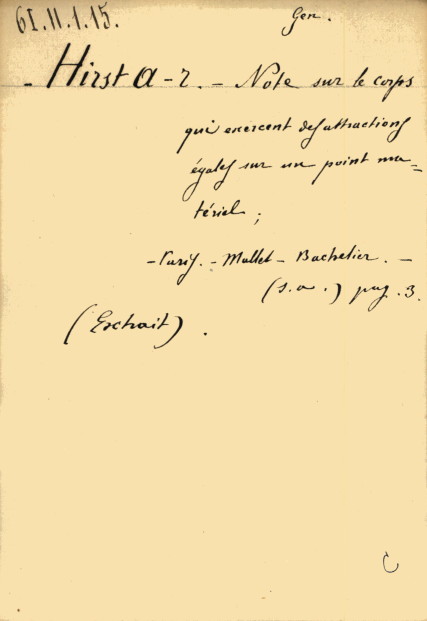 61.II.1.15.
Gen.
- Hirst a-r. - Note sur le corps
qui exercent des attractions
égales sur un point ma=
tériel ;
- Paris. - Mallet - Bachelier. -
(s.a.) pag. 3.
(Extrait) .
C